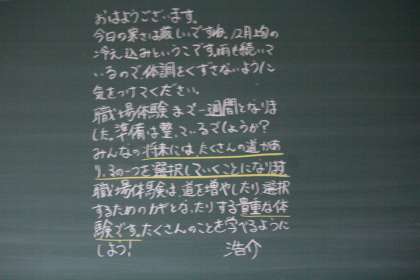 おはようございます。
今日の寒さは厳しいですね。12月均の
冷え込みということです。雨も続いて
いるので体調をくずさないように
気をつけてください。
職場体験まで一週間となりま
した。準備は整っているでしょうか?
みんなの将来にはたくさんの道があ
り、その一つを選択していくことになります
職場体験は道を増やしたり選択
するためのカギとなったりする貴重な体
験です。たくさんのことを学べるように
しよう! 浩介